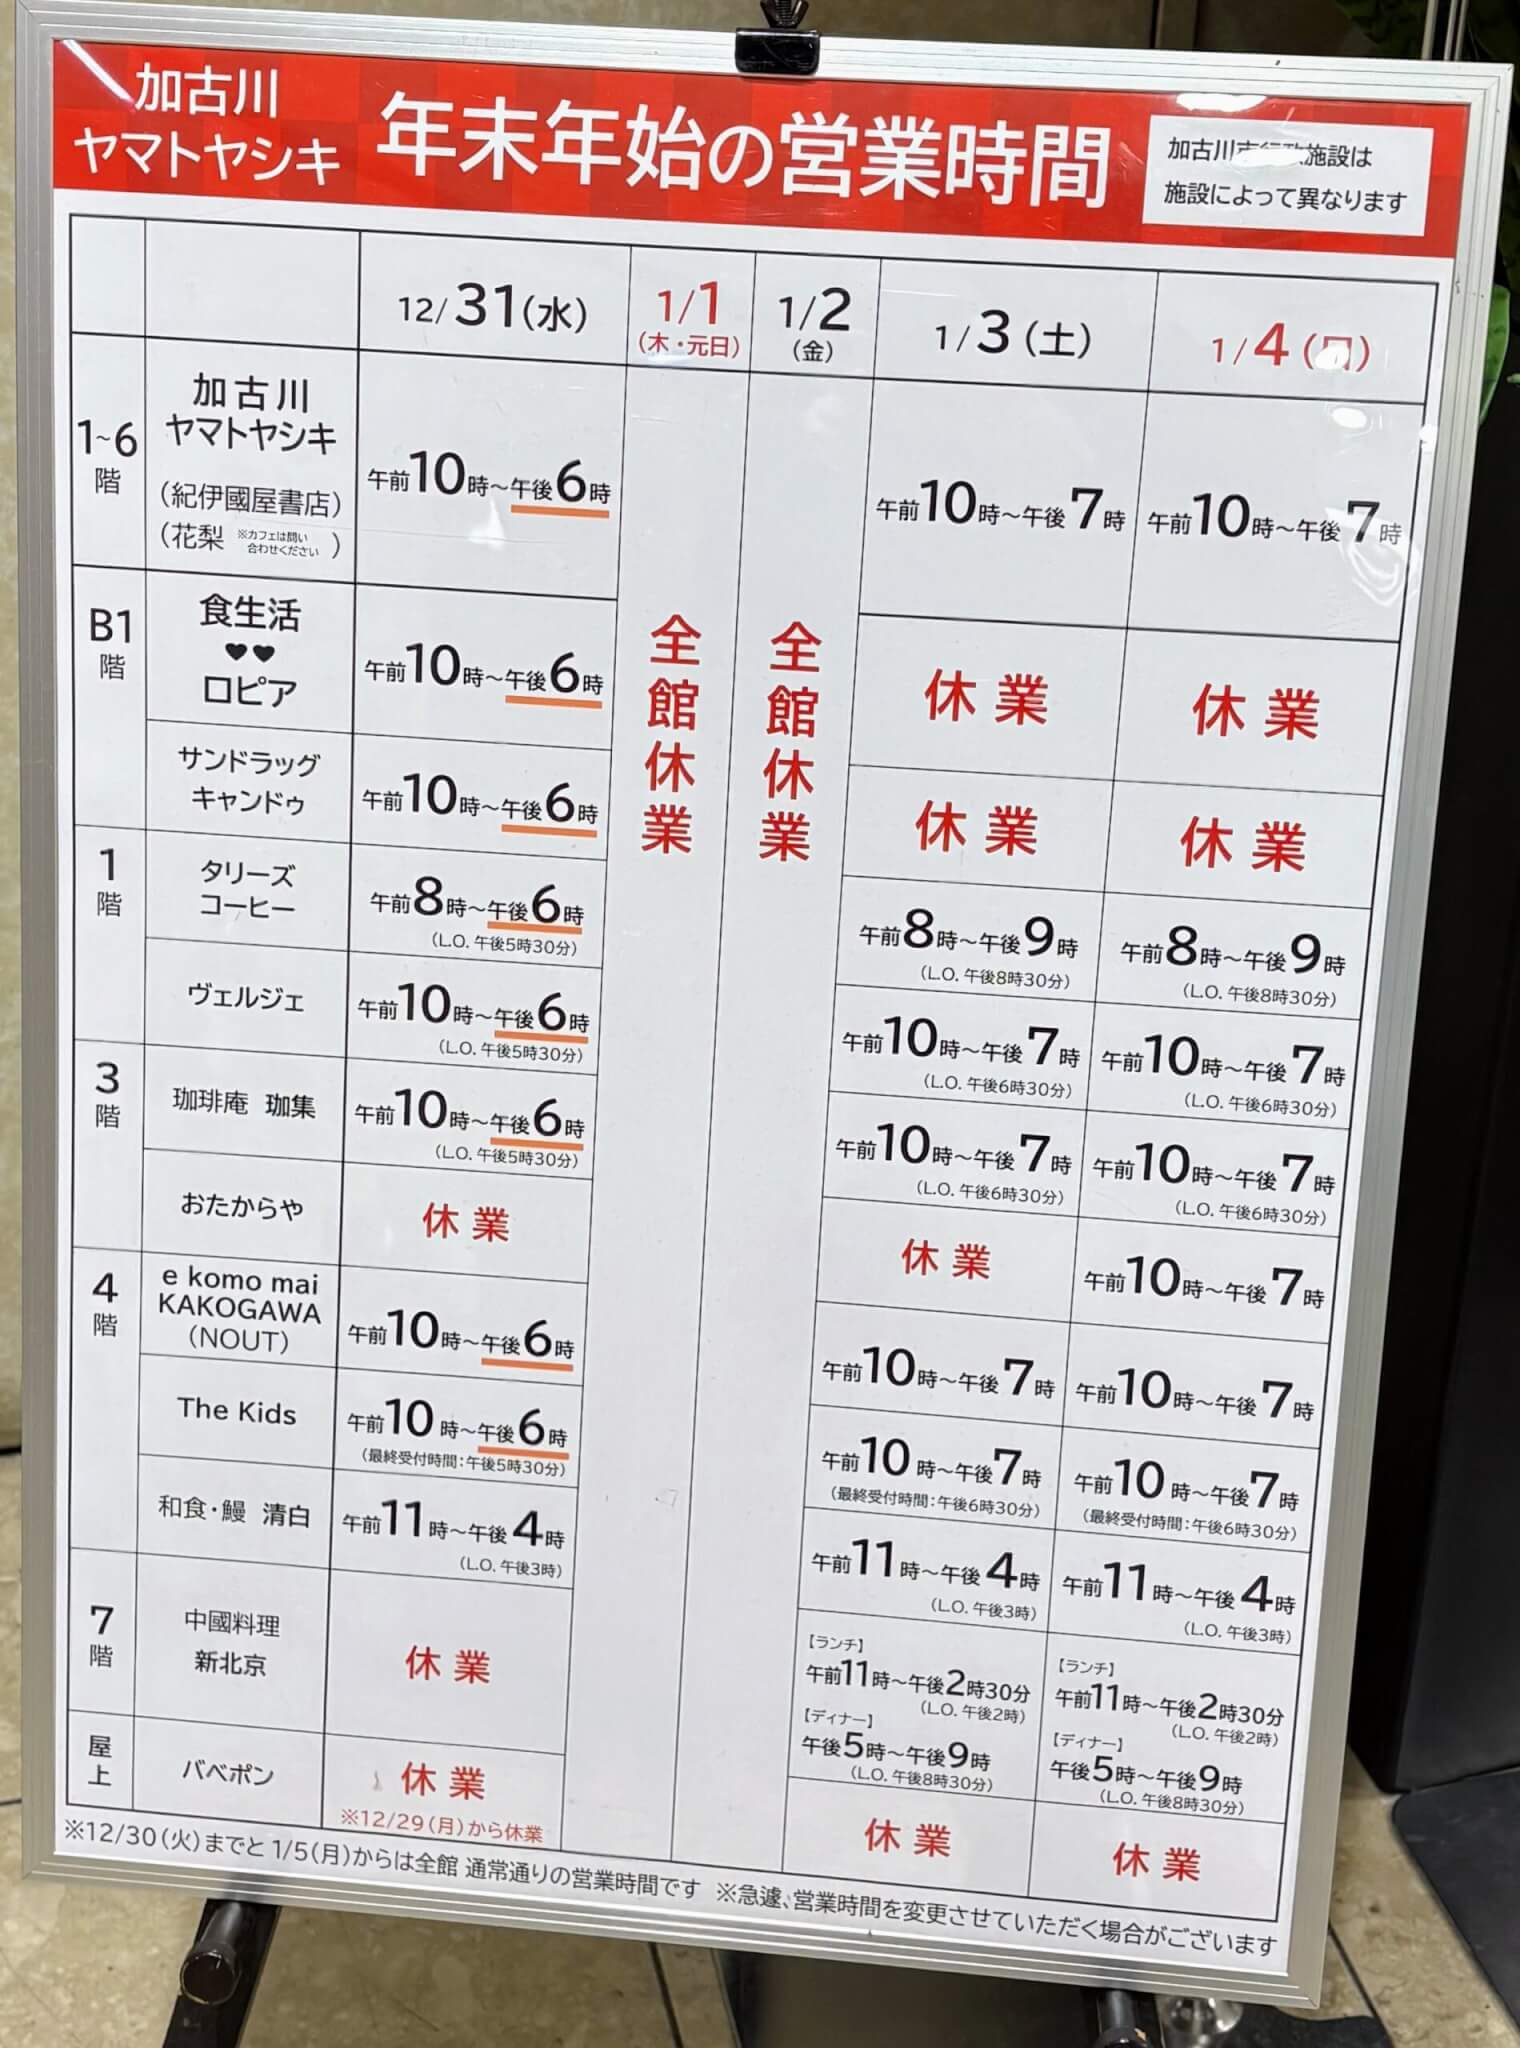 加古川
ヤマトヤシキ
年末年始の営業時間
加古川市行政施設は
施設によって異なります
12/31(水)
1/1
(木・元日)
1/2
(金)
1/3(土)
1/4(日)
1~6
階
加古川
ヤマトヤシキ
(紀伊國屋書店)
(花梨 ※カフェは問い
合わせください)
午前10時～午後6時
全館休業
全館休業
午前10時～午後7時
午前10時～午後7時
B1
階
食生活
♥♥
ロピア
午前10時～午後6時
休業
休業
サンドラッグ
キャンドゥ
午前10時～午後6時
休業
休業
1
階
タリーズ
コーヒー
午前8時～午後6時
(L.O. 午後5時30分)
午前8時～午後9時
(L.O. 午後8時30分)
午前8時～午後9時
(L.O. 午後8時30分)
ヴェルジェ
午前10時～午後6時
(L.O. 午後5時30分)
午前10時～午後7時
(L.O. 午後6時30分)
午前10時～午後7時
(L.O. 午後6時30分)
3
階
珈琲庵 珈集
午前10時～午後6時
(L.O. 午後5時30分)
午前10時～午後7時
(L.O. 午後6時30分)
午前10時～午後7時
(L.O. 午後6時30分)
おたからや
休業
休業
午前10時～午後7時
4
階
e komo mai
KAKOGAWA
(NOUT)
午前10時～午後6時
午前10時～午後7時
午前10時～午後7時
The Kids
午前10時～午後6時
(最終受付時間:午後5時30分)
午前10時～午後7時
(最終受付時間:午後6時30分)
午前10時～午後7時
(最終受付時間:午後6時30分)
和食・鰻 清白
午前11時～午後4時
(L.O. 午後3時)
午前11時～午後4時
(L.O. 午後3時)
午前11時～午後4時
(L.O. 午後3時)
7
階
中國料理
新北京
休業
【ランチ】
午前11時～午後2時30分
(L.O. 午後2時)
【ディナー】
午後5時～午後9時
(L.O. 午後8時30分)
【ランチ】
午前11時～午後2時30分
(L.O. 午後2時)
【ディナー】
午後5時～午後9時
(L.O. 午後8時30分)
屋
上
バベポン
休業
※12/29(月)から休業
休業
休業
※12/30(火)までと1/5(月)からは全館 通常通りの営業時間です ※急遽、営業時間を変更させていただく場合がございます